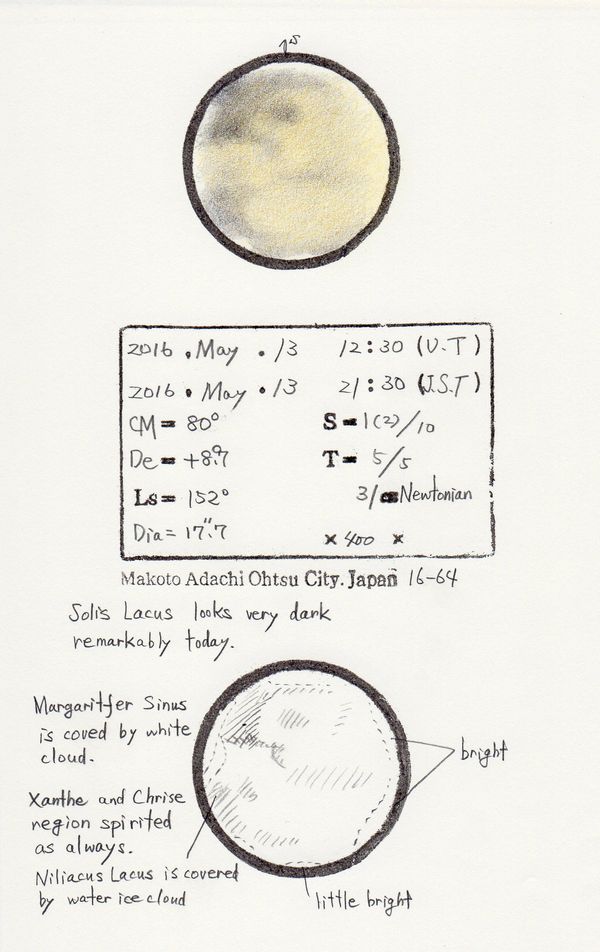 S
2016 . May . 13 12:30 (U.T)
2016 . May . 13 21:30 (J.S.T)
CM = 80° S = 1(2)/10
De = +8.°7 T = 5/5
Ls = 152° 31 Newtonian
Dia = 17".7 × 400 ×
Makoto Adachi Ohtsu City. Japan 16-64
Solis Lacus looks very dark
remarkably today.
Margaritfer Sinus
is coved by white
cloud.
bright
Xanthe and Chrise
region spirited
as always.
Niliacus Lacus is covered
by water ice cloud
little bright